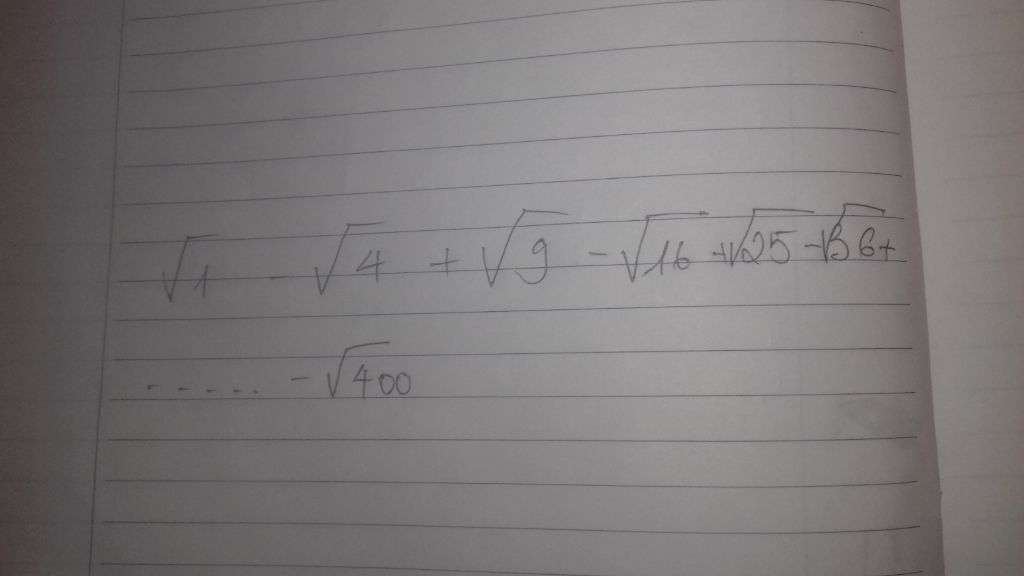 √1 - √4 + √9 - √16 + √25 - √36 +
. . . . . . - √400